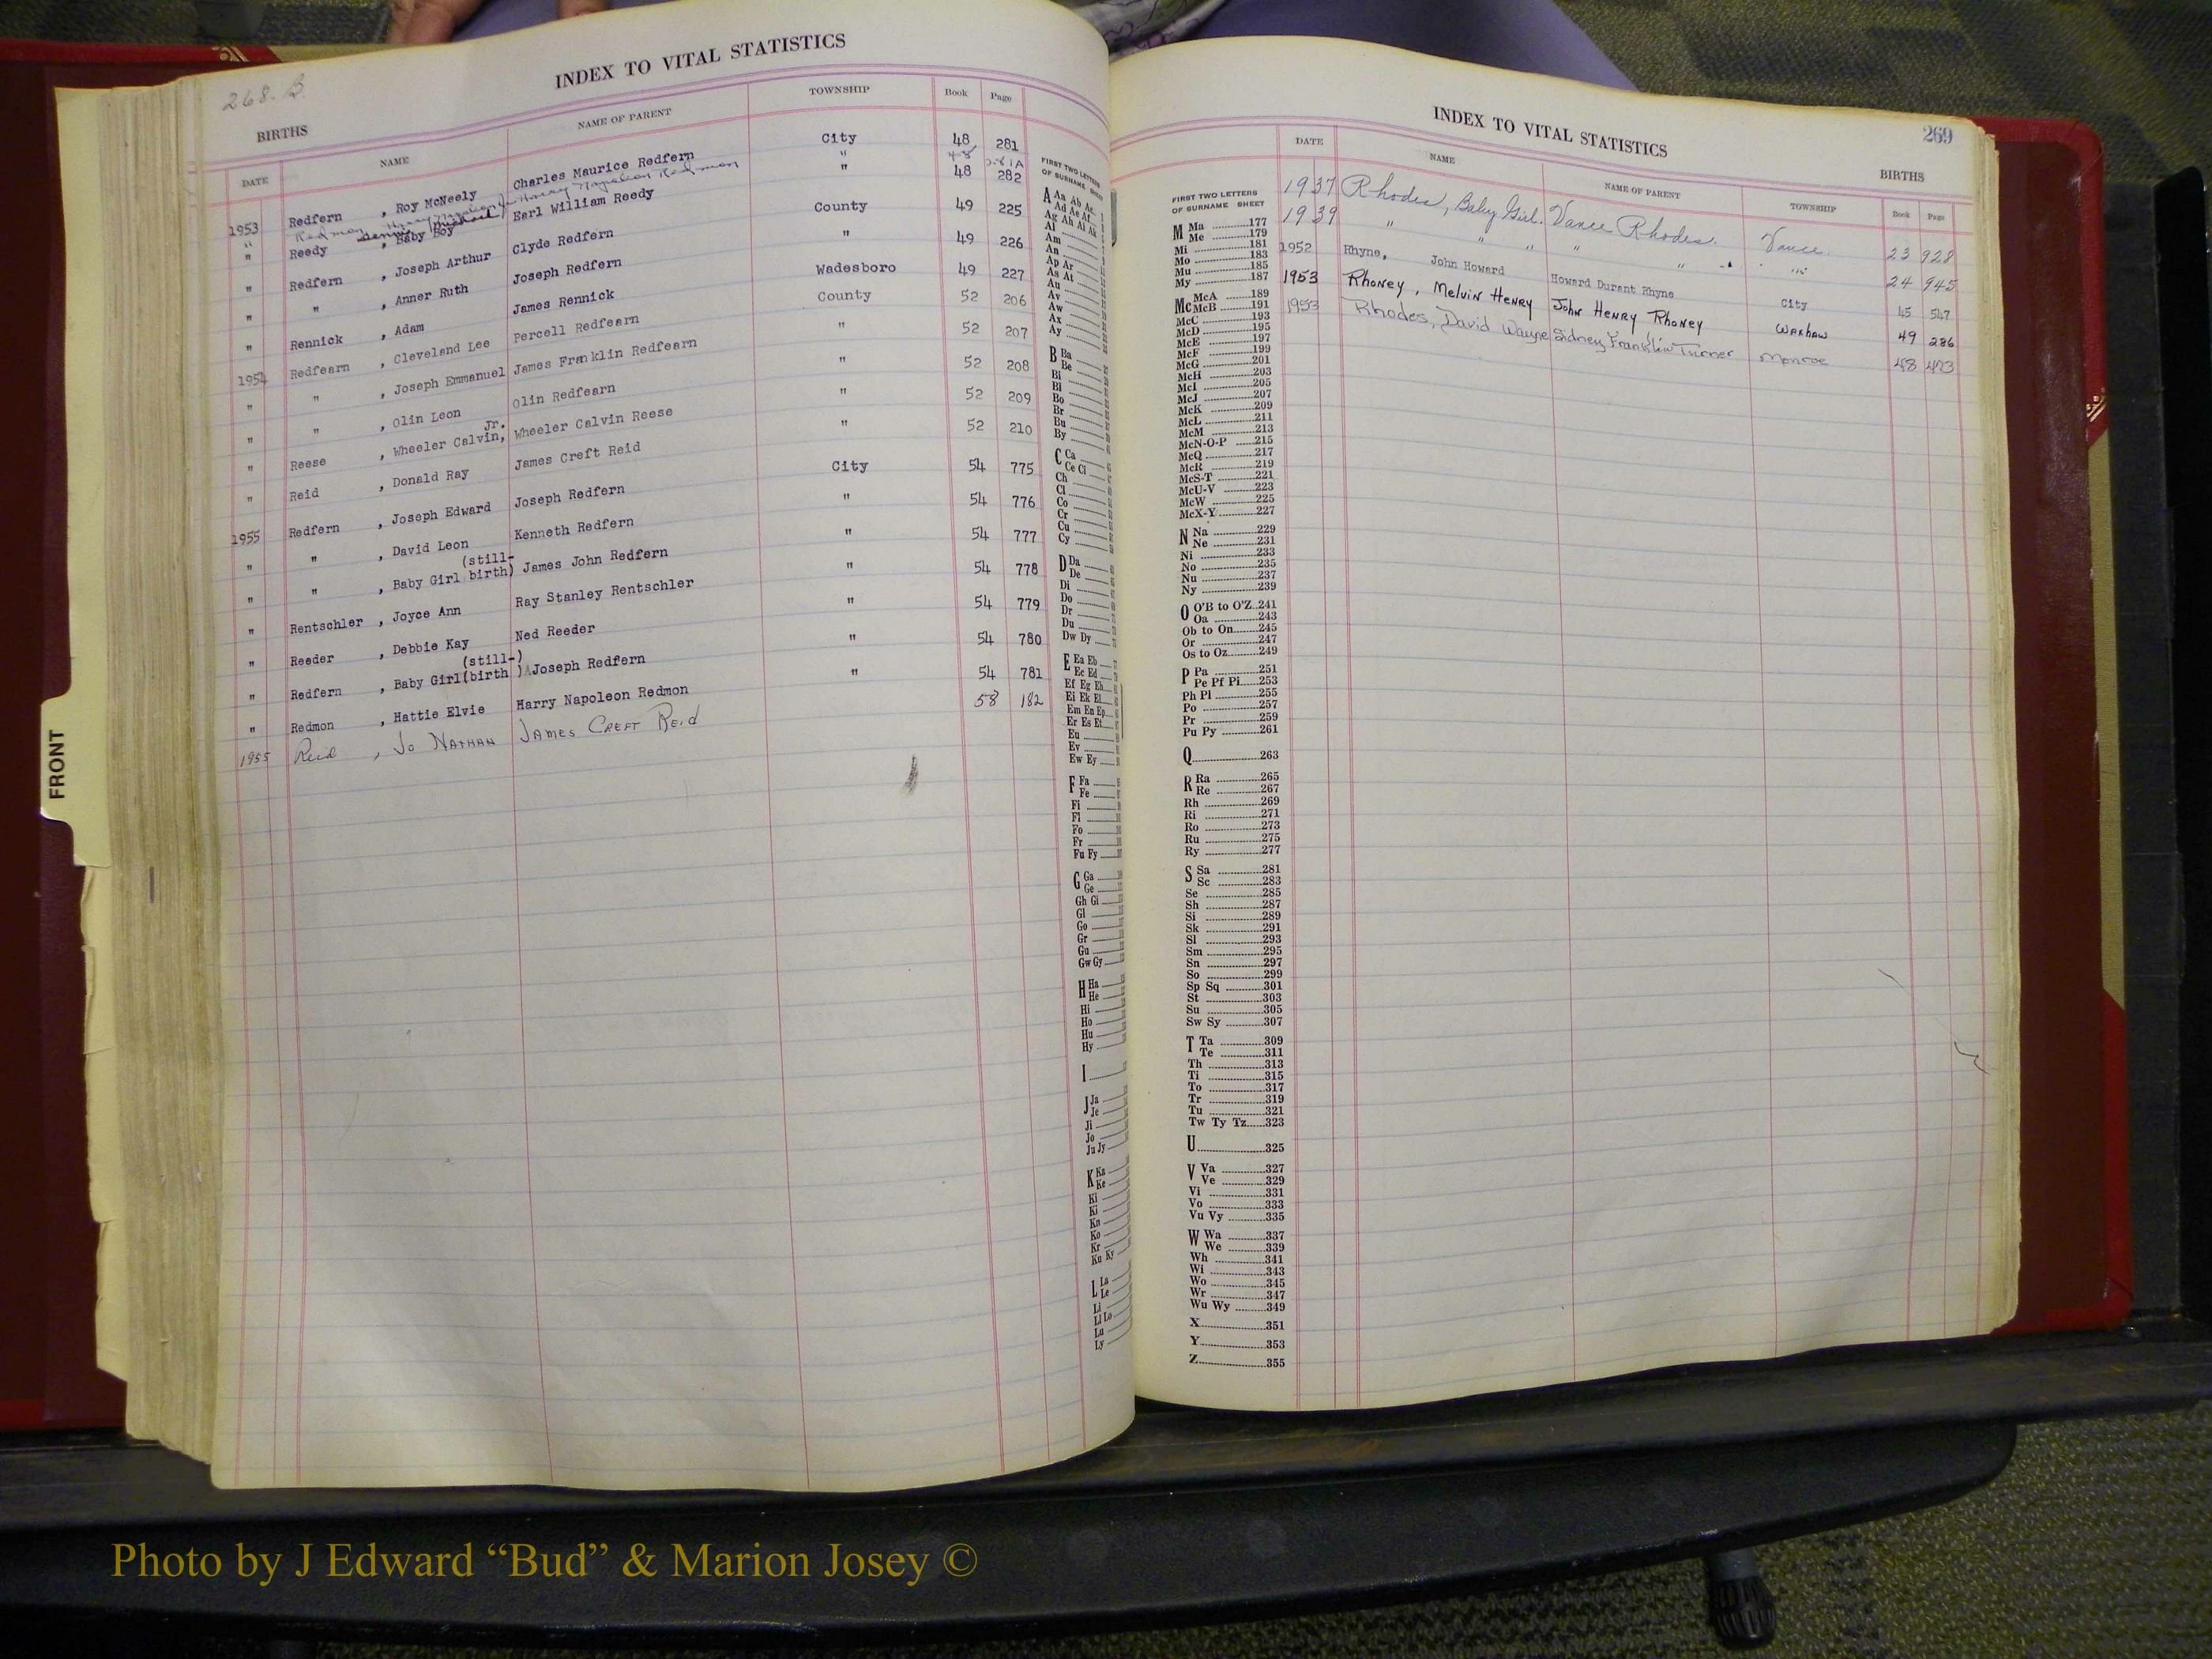 268-B.
INDEX TO VITAL STATISTICS
BIRTHS
DATE NAME NAME OF PARENT TOWNSHIP Book Page
1953 Redfern , Roy McNeely Charles Maurice Redfern City 48 281
Redmon Henry Napoleon Redmon " 48 281A
" Reedy , Baby Boy Earl William Reedy " 48 282
" Redfern , Joseph Arthur Clyde Redfern County 49 225
" " , Anner Ruth Joseph Redfern " 49 226
" Rennick , Adam James Rennick Wadesboro 49 227
1954 Redfearn , Cleveland Lee Percell Redfearn County 52 206
" " , Joseph Emmanuel James Franklin Redfearn " 52 207
" " , Olin Leon Olin Redfearn " 52 208
" Reese , Wheeler Calvin, Jr. Wheeler Calvin Reese " 52 209
" Reid , Donald Ray James Creft Reid " 52 210
1955 Redfern , Joseph Edward Joseph Redfern City 54 775
" " , David Leon Kenneth Redfern " 54 776
" " , Baby Girl (still-birth) James John Redfern " 54 777
" Rentschler , Joyce Ann Ray Stanley Rentschler " 54 778
" Reeder , Debbie Kay Ned Reeder " 54 779
" Redfern , Baby Girl (still-)(birth ) Joseph Redfern " 54 780
" Redmon , Hattie Elvie Harry Napoleon Redmon " 54 781
1955 Reid , Jo Nathan James Creft Reid 58 182
FRONT
FIRST TWO LETTERS
OF SURNAME SHEET
A Aa Ab Ac
Ad Ae Af
Ag Ah Ai Ak
Al
Am
An
Ap Ar
As At
Au
Av
Aw
Ax
Ay
B Ba
Be
Bi
Bl
Bo
Br
Bu
By
C Ca
Ce Ci
Ch
Cl
Co
Cr
Cu
Cy
D Da
De
Di
Do
Dr
Du
Dw Dy
E Ea Eb
Ec Ed
Ef Eg Eh
Ei Ek El
Em En Ep
Er Es Et
Eu
Ev
Ew Ey
F Fa
Fe
Fi
Fl
Fo
Fr
Fu Fy
G Ga
Ge
Gh Gi
Gl
Go
Gr
Gu
Gw Gy
H Ha
He
Hi
Ho
Hu
Hy
I
J Ja
Je
Ji
Jo
Ju Jy
K Ka
Ke
Ki
Kl
Kn
Ko
Kr
Ku Ky
L La
Le
Li
Ll Lo
Lu
Ly
269
INDEX TO VITAL STATISTICS
BIRTHS
DATE NAME NAME OF PARENT TOWNSHIP Book Page
1937 Rhodes, Baby Girl. Vance Rhodes. Vance. 23 928
1939 " " " " " " 24 945
1952 Rhyne, John Howard Howard Durant Rhyne City 45 547
1953 Rhoney , Melvin Henry John Henry Rhoney Waxhaw 49 286
1953 Rhodes, David Wayne Sidney Franklin Turner Monroe 48 473
FIRST TWO LETTERS
OF SURNAME SHEET
M Ma 177
Me 179
Mi 181
Mo 183
Mu 185
My 187
Mc McA 189
McB 191
McC 193
McD 195
McE 197
McF 199
McG 201
McH 203
McI 205
McJ 207
McK 209
McL 211
McM 213
McN-O-P 215
McQ 217
McR 219
McS-T 221
McU-V 223
McW 225
McX-Y 227
N Na 229
Ne 231
Ni 233
No 235
Nu 237
Ny 239
O O'B to O'Z 241
Oa 243
Ob to On 245
Or 247
Os to Oz 249
P Pa 251
Pe Pf Pi 253
Ph Pl 255
Po 257
Pr 259
Pu Py 261
Q 263
R Ra 265
Re 267
Rh 269
Ri 271
Ro 273
Ru 275
Ry 277
S Sa 281
Sc 283
Se 285
Sh 287
Si 289
Sk 291
Sl 293
Sm 295
Sn 297
So 299
Sp Sq 301
St 303
Su 305
Sw Sy 307
T Ta 309
Te 311
Th 313
Ti 315
To 317
Tr 319
Tu 321
Tw Ty Tz 323
U 325
V Va 327
Ve 329
Vi 331
Vo 333
Vu Vy 335
W Wa 337
We 339
Wh 341
Wi 343
Wo 345
Wr 347
Wu Wy 349
X 351
Y 353
Z 355
Photo by J Edward “Bud” & Marion Josey ©